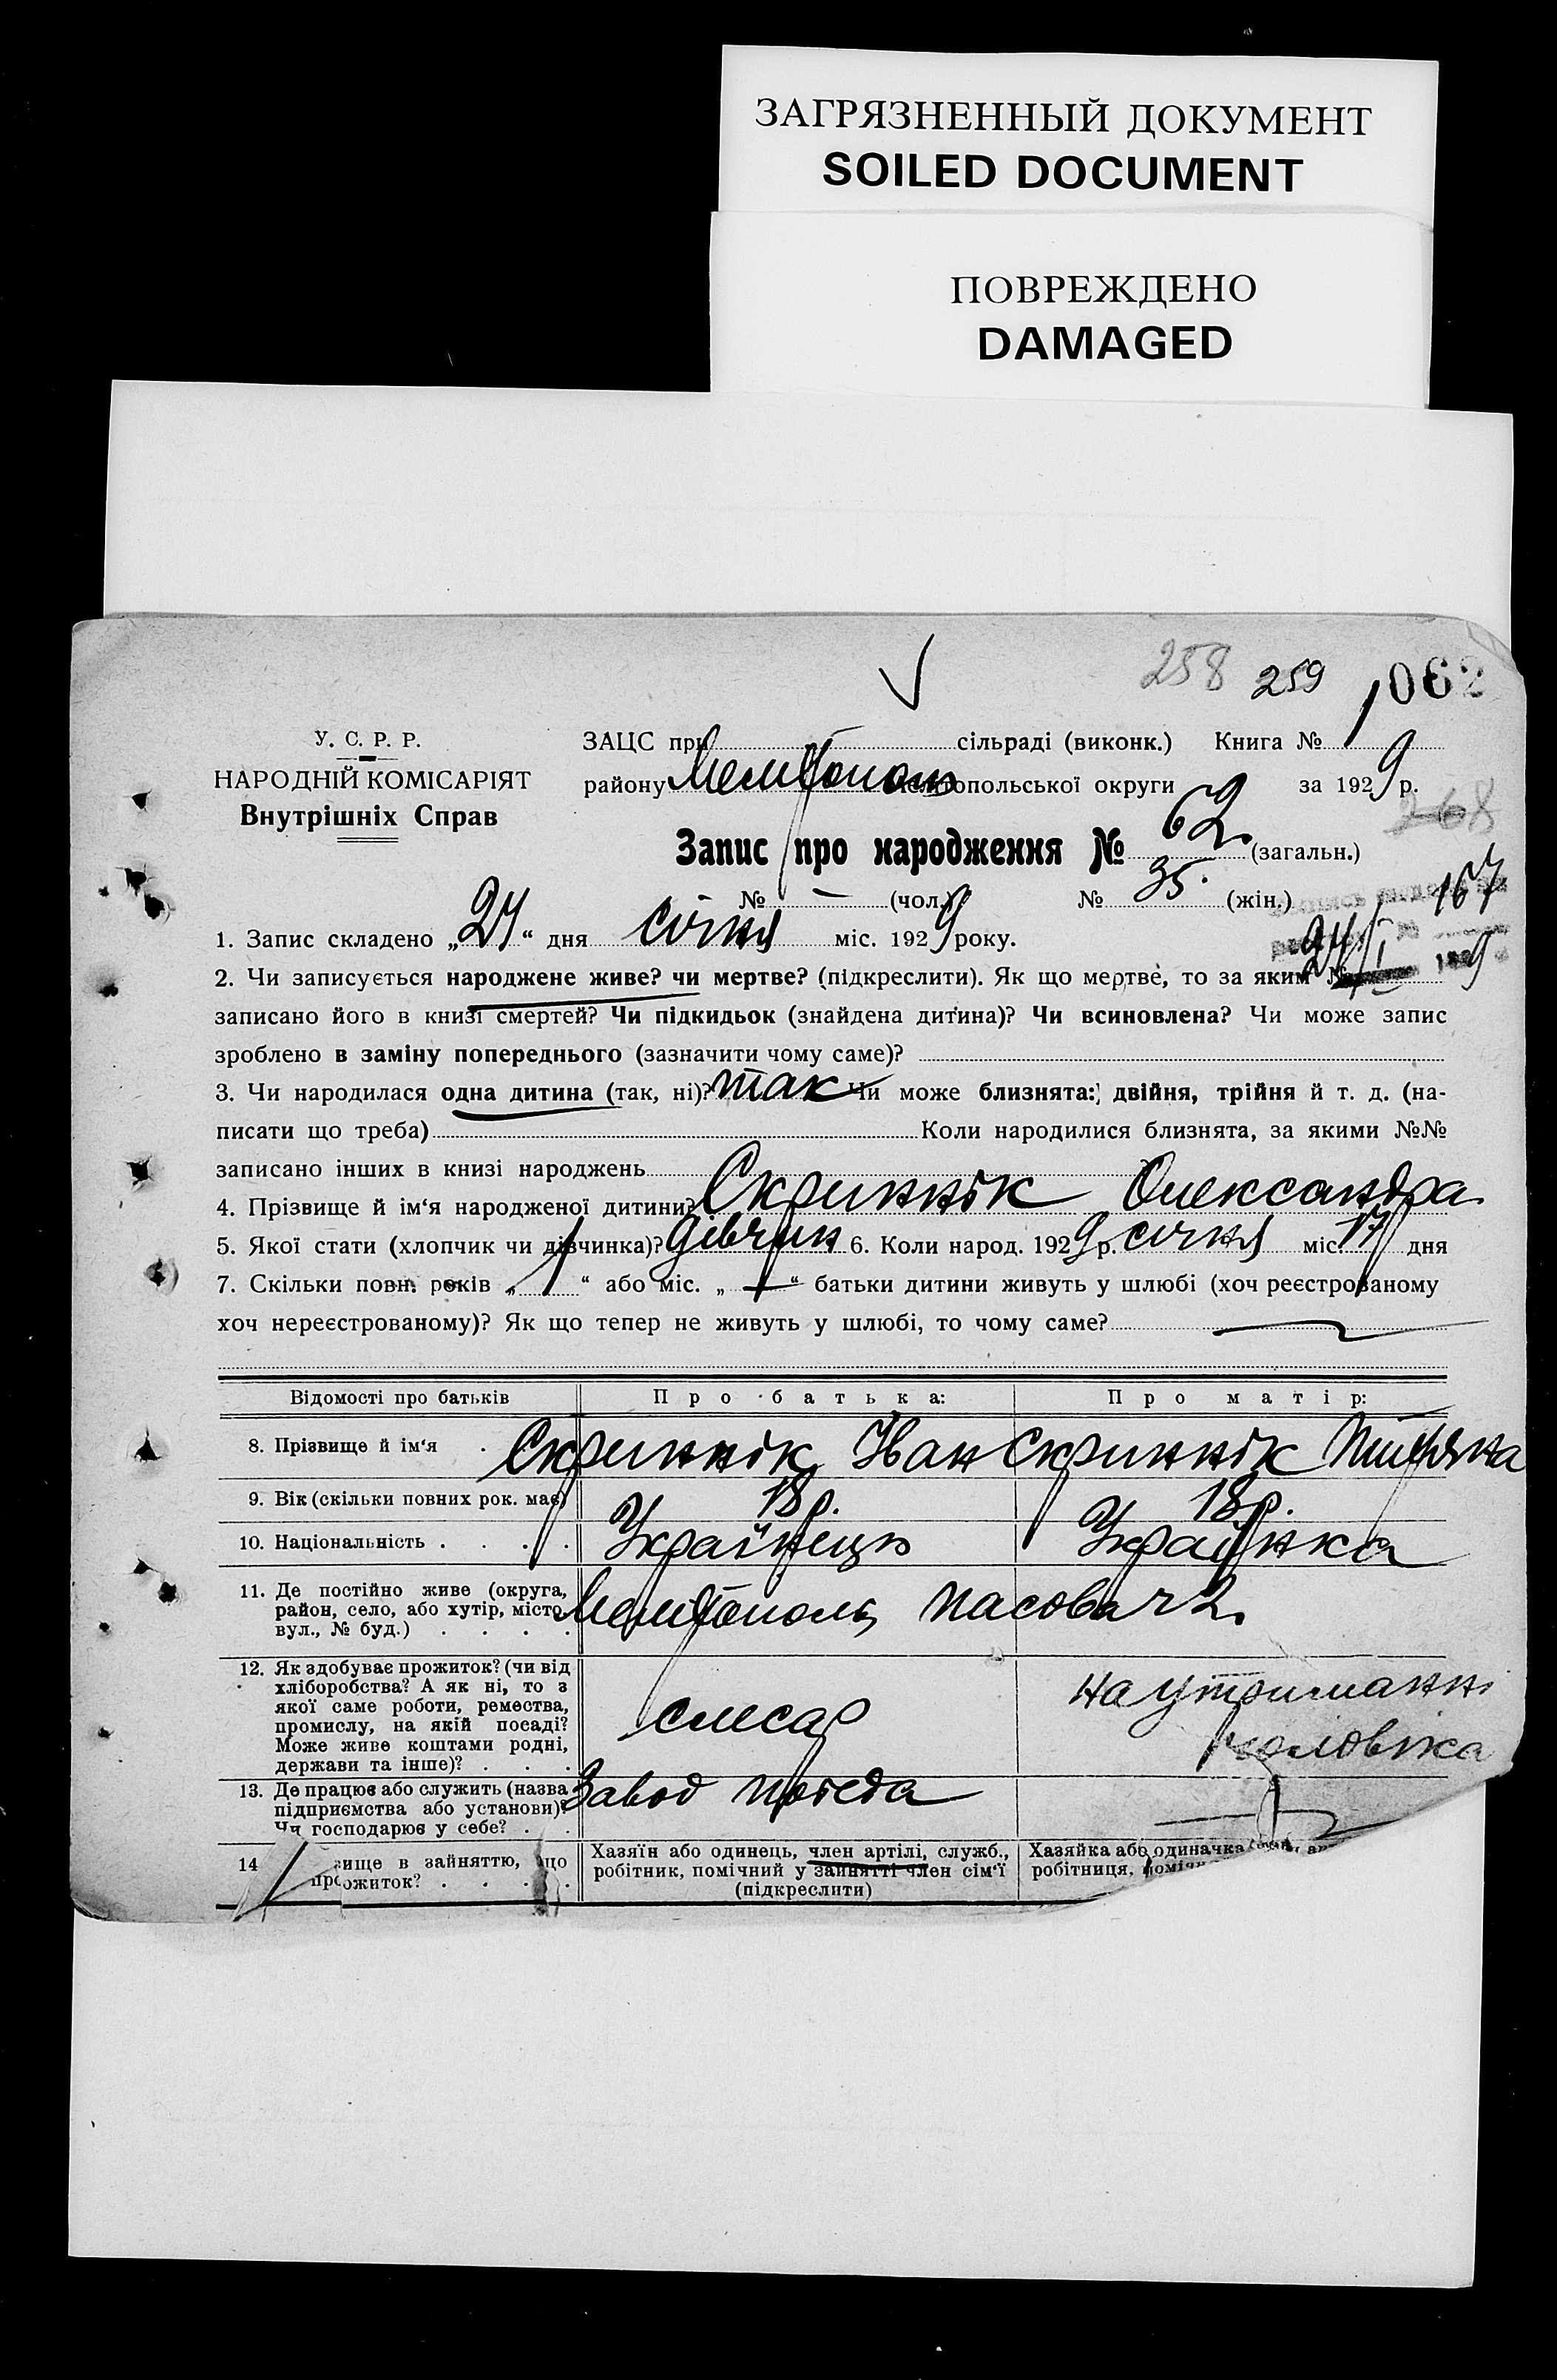 ЗАГРЯЗНЕННЫЙ ДОКУМЕНТ
SOILED DOCUMENT
ПОВРЕЖДЕНО
DAMAGED
258 259 062
У. С. Р. Р.
НАРОДНІЙ КОМІСАРІЯТ
Внутрішніх Справ
ЗАЦС при сільраді (виконк.) Книга № 1
району Мелітополь Мелітопольської округи за 1929 р.
268
Запис про народження № 62 (загальн.)
№ — (чол.) № 35. (жін.)
167
1. Запис складено „24“ дня січня міс. 1929 року.
24/I 9
2. Чи записується народжене живе? чи мертве? (підкреслити). Як що мертве, то за яким №
записано його в книзі смертей? Чи підкидьок (знайдена дитина)? Чи всиновлена? Чи може запис
зроблено в заміну попереднього (зазначити чому саме)?
3. Чи народилася одна дитина (так, ні)? так Чи може близнята: двійня, трійня й т. д. (на-
писати що треба) Коли народилися близнята, за якими №№
записано інших в книзі народжень
4. Прізвище й ім‘я народженої дитини? Скриннік Олександра
5. Якої стати (хлопчик чи дівчинка)? дівчин 6. Коли народ. 1929 р. січня міс. 17 дня
7. Скільки повн. років „1“ або міс. „—“ батьки дитини живуть у шлюбі (хоч реєстрованому
хоч нереєстрованому)? Як що тепер не живуть у шлюбі, то чому саме?
Відомості про батьків Про батька: Про матір:
8. Прізвище й ім‘я Скриннік Іван Скриннік
9. Вік (скільки повних рок. має) 18 р. 18 р.
10. Національність Українець Українка
11. Де постійно живе (округа,
район, село, або хутір, місто,
вул., № буд.)
Мелітополь Пасова ч 2.
12. Як здобуває прожиток? (чи від
хліборобства? А як ні, то з
якої саме роботи, ремества,
промислу, на якій посаді?
Може живе коштами родні,
держави та інше)?
слесар
на утриманні
чоловіка
13. Де працює або служить (назва
підприємства або установи)?
Чи господарює у себе?
Завод Победа
14 вище в зайняттю, що
прожиток?
Хазяїн або одинець, член артілі, служб.,
робітник, помічний у занятті член сім‘ї
(підкреслити)
Хазяйка або одиначка
робітниця,